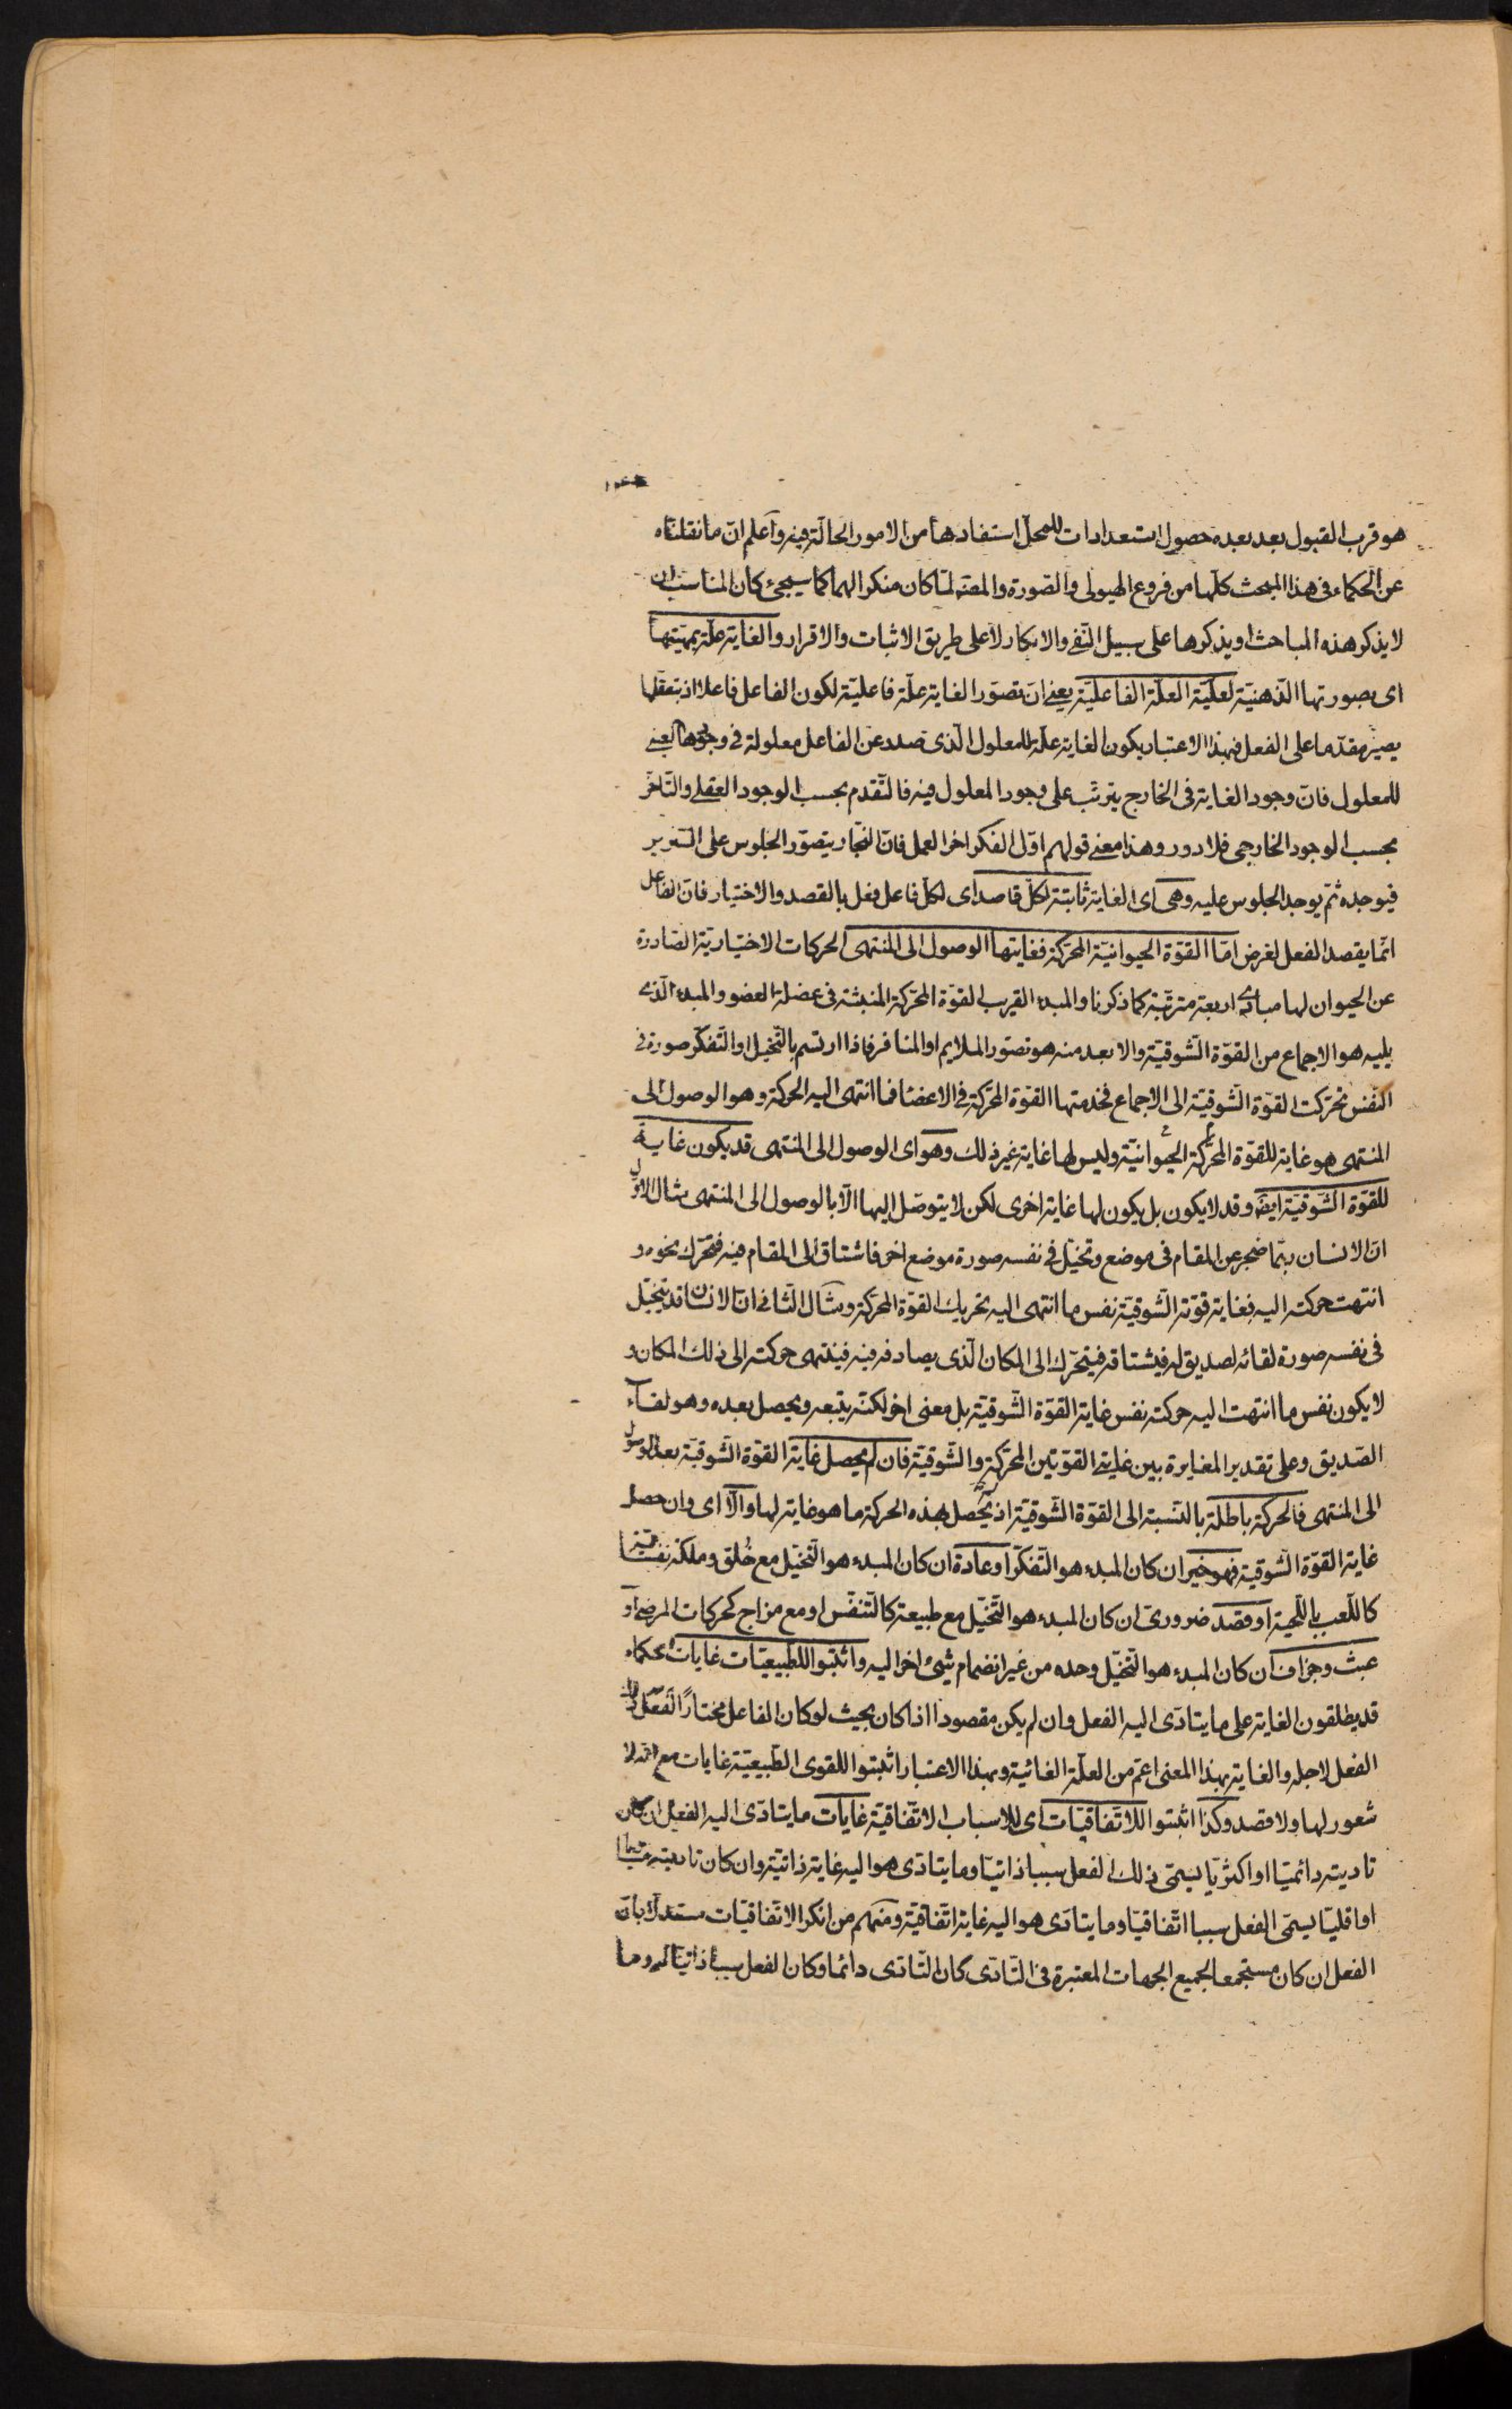 هو قرب القبول بعد بعده حصول استعدادات للمحل استفادها من الامور الحالّة فيه واعلم انّ ما نقلناه
عن الحكماء فى هذا المبحث كلّها من فروع الهيولى والصّورة والمصنّه لمّا كان منكرا لهما كما سيجئ كان المناسب ان
لا يذكر هذه المباحث او يذكرها على سبيل النّفى والانكار لا على طريق الاثبات والاقرار والغاية علّة بمهيّتها
اى بصورتها الذّهنيّة لعلّيّة العلّة الفاعليّة يعنى انّ تصوّر الغاية علّة فاعليّة لكون الفاعل فاعلا اذ بتعقلها
يصير مقدّما على الفعل فبهذا الاعتبار يكون الغاية علّة للمعلول الّذى صدر عن الفاعل معلولة فى وجودها العينى
للمعلول فانّ وجود الغاية فى الخارج يترتّب على وجود المعلول فيه فالتّقدم بحسب الوجود العقلى والتّاخّر
بحسب الوجود الخارجى فلا دور وهذا معنى قولهم اوّل الفكر اخر العمل فانّ النّجّار يتصوّر الجلوس على السّرير
فيوجده ثمّ يوجد الجلوس عليه وهى اى الغاية ثابتة لكلّ قاصد اى لكلّ فاعل فعل بالقصد والاختيار فانّ الفاعل
انّما يقصد الفعل لغرض امّا القوّة الحيوانيّة المحرّكة فغايتها الوصول الى المنتهى الحركات الاختياريّة الصّادرة
عن الحيوان لها مبادى اربعة مترتّبة كما ذكرنا والمبدء القريب القوّة المحرّكة المنبثّة فى عضلة العضو والمبدء الّذى
يليه هو الاجماع من القوّة الشّوقيّة والابعد منه هو تصوّر الملايم او المنافر فاذا ارتسم بالتّخيل او التّفكّر صورة فى
النّفس تحرّكت القوّة الشّوقيّة الى الاجماع فخدمتها القوّة المحرّكة فى الاعضاء فما انتهى اليه الحركة وهو الوصول الى
المنتهى هو غاية للقوّة المحرّكة الحيوانيّة وليس لها غاية غير ذلك وهو اى الوصول الى المنتهى قد يكون غاية
للقوّة الشّوقيّة ايضه وقد لا يكون بل يكون لها غاية اخرى لكن لا يتوصّل اليها الّا بالوصول الى المنتهى مثال الاوّل
انّ الانسان ربّما ضجر عن المقام فى موضع وتخيّل فى نفسه صورة موضع اخر فاشتاق الى المقام فيه فتحرّك نحوه و
انتهت حركته اليه فغاية قوّته الشّوقيّة نفس ما انتهى اليه تحريك القوّة المحرّكة ومثال الثّانى انّ الانسان قد يتخيّل
فى نفسه صورة لقائه لصديق له فيشتاقه فيتحرّك الى المكان الّذى يصادفه فيه فينتهى حركته الى ذلك المكان و
لا يكون نفس ما انتهت اليه حركته نفس غاية القوّة الشّوقيّة بل معنى اخر لكنّه يتبعه ويحصل بعده وهو لقاء
الصّديق وعلى تقدير المغايرة بين غايتى القوّتين المحرّكة والشّوقيّة فان لم يحصل غاية القوّة الشّوقيّة بعد الوصول
الى المنتهى فالحركة باطلة بالنّسبة الى القوّة الشّوقيّة اذ لم يحصل بهذه الحركة ما هو غاية لها والّا اى وان حصل
غاية القوّة الشّوقيّة فهو خير ان كان المبدء هو التّفكّر او عادة ان كان المبدء هو التّخيّل مع خُلق وملكة نفسانيّة
كاللّعب باللّحية او قصد ضرورىّ ان كان المبدء هو التّخيّل مع طبيعة كالتّنفّس او مع مزاج كحركات المرضى او
عبث وجزاف ان كان المبدء هو التّخيّل وحده من غير انضمام شىء اخر اليه واثبتوا للطّبيعيّات غايات الحكماء
قد يطلقون الغاية على ما يتادّى اليه الفعل وان لم يكن مقصودا اذا كان بحيث لو كان الفاعل مختارًا لفعل ذلك
الفعل لاجله والغاية بهذا المعنى اعمّ من العلّة الغائية وبهذا الاعتبار اثبتوا للقوى الطّبيعيّة غايات مع انّه لا
شعور لها ولا قصد وكذا اثبتوا للاتّفاقيّات اى للاسباب الاتّفاقيّة غايات ما يتادّى اليه الفعل ان كان
تاديته دائميّا او اكثريّا يسمّى ذلك الفعل سببا ذاتيّا وما يتادّى هو اليه غاية ذاتيّة وان كان تاديته متساويا
او اقليّا يسمّى الفعل سببا اتّفاقيّا وما يتادّى هو اليه غاية اتّفاقيّة ومنهم من انكر الاتّفاقيّات مستدلّا بانّ
الفعل ان كان مستجمعا لجميع الجهات المعتبرة فى التّادّى كان التّادّى دائما وكان الفعل سببا ذاتيّا له وما